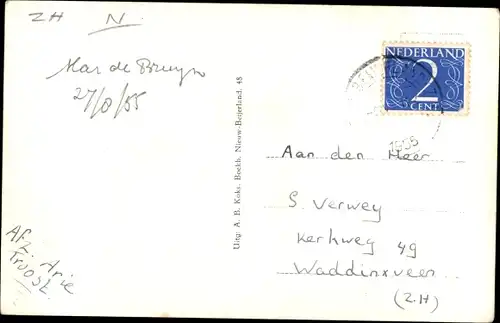 ZH N.
Mar de Bruyn
27/8/55
Afz. Arie
Troost.
Uitg. A. B. Koks. Boekh. Nieuw-Beijerland. 48
NEDERLAND
2
CENT
1955
Aan den Heer
S. Verwey
Kerkweg 49
Waddinxveen
(Z.H)